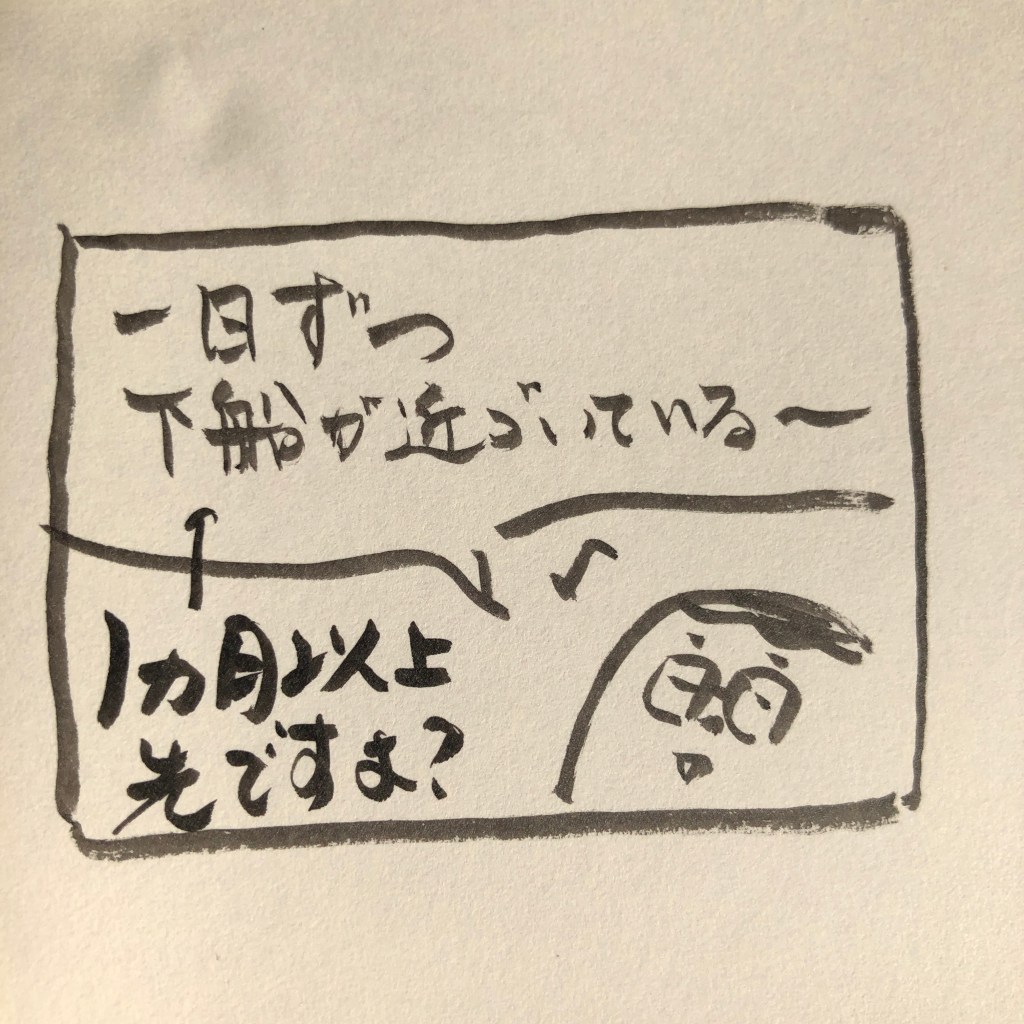 一日ずつ
下船が近づいている〜
1ヵ月以上
先ですよ?